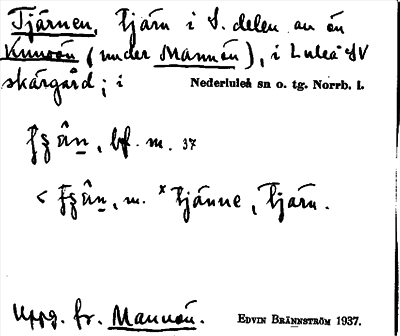 Tjärnen, tjärn i S. delen av ön
Kunoön (under Mannön), i Luleå SV
skärgård; i Nederluleå sn o. tg. Norrb. l.
bf. m. 37
<, m. *tjänne, tjärn.
Uppg. fr. Mannön. EDVIN BRÄNNSTRÖM 1937.